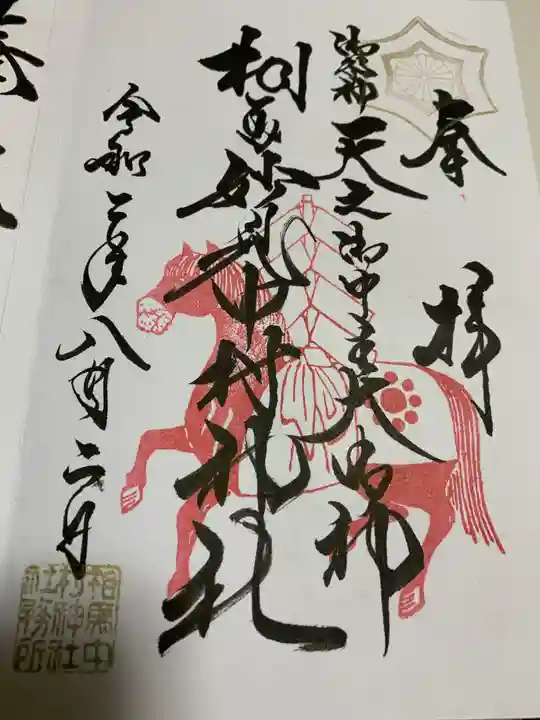 奉拝
御祭神 天之御中主大御神
相馬妙見中村神社
令和二年八月二日
相馬中
村神社
社務所